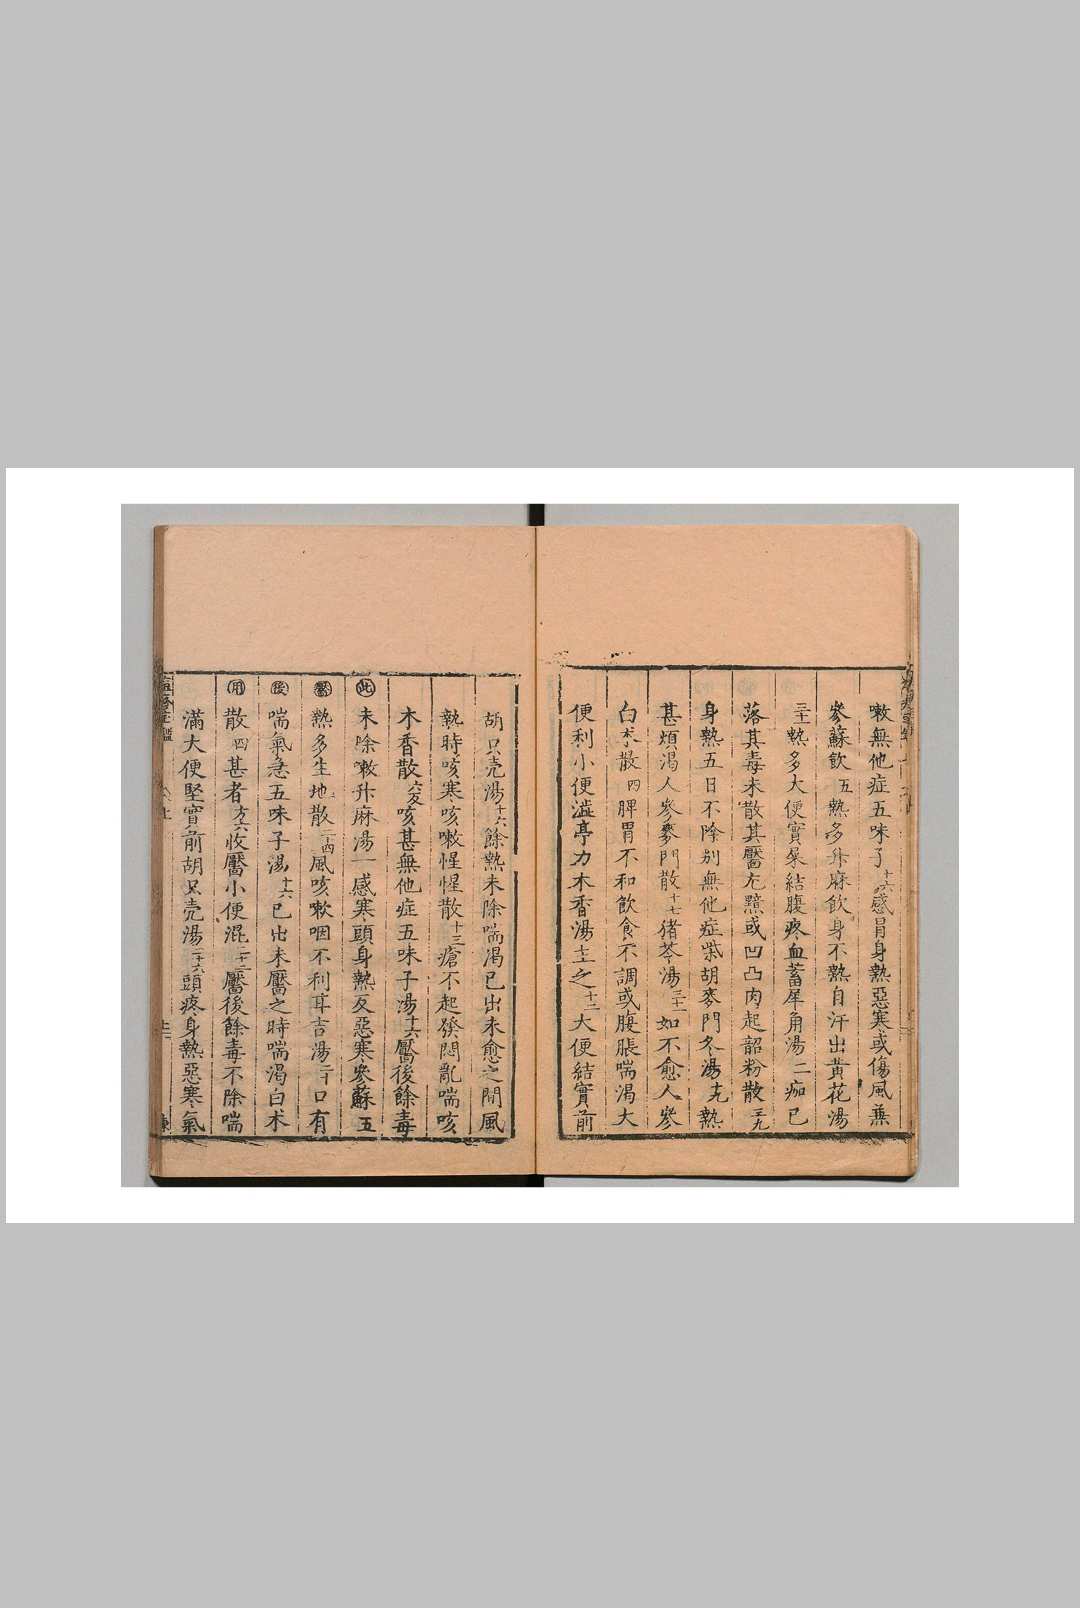 嗽無他症五味子十六感冒身熱惡寒或傷風兼
參蘇飲五熱多升麻飲身不熱自汗出黃花湯
三十熱多大便實屎結腹疼血蓄犀角湯二痂已
落其毒未散其靨尢黯或凹凸肉起韶粉散三九
身熱五日不除别無他症柴胡麥門冬湯十九熱
甚煩渴人參麥門散十七猪苓湯三十一如不愈人參
白朮散四脾胃不和飲食不調或腹脹喘渴大
便利小便澁亭力木香湯主之十二大便結實前
胡只壳湯十六餘熱未除喘渴已出未愈之間風
熱時咳寒咳嗽惺惺散十三瘡不起發悶亂喘咳
木香散六咳甚無他症五味子湯十六靨後餘毒
此未除嗽升麻湯一感寒頭身熱反惡寒參蘇五
靨熱多生地散二十四風咳嗽咽不利耳吉湯二十口有
後喘氣急五味子湯十六已出未靨之時喘渴白术
用散四甚者方六收靨小便混三十二靨後餘毒不除喘
滿大便堅實前胡只壳湯二十六頭疼身熱惡寒氣